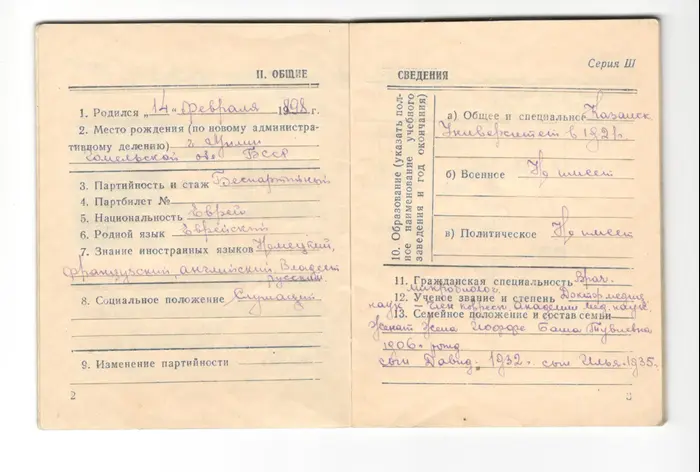 II. ОБЩИЕ
1. Родился „14„ февраля 1898 г.
2. Место рождения (по новому администра-
тивному делению) г.
Гомельской обл БССР
3. Партийность и стаж Беспартийный
4. Партбилет №
5. Национальность Еврей
6. Родной язык Еврейский
7. Знание иностранных языков Немецкий,
французский, английский. Владеет
русским.
8. Социальное положение Служащий.
9. Изменение партийности
2
Серия III
СВЕДЕНИЯ
10. Образование (указать пол-
ное наименование учебного
заведения и год окончания)
а) Общее и специальное Казанск
Университет в 1921г.
б) Военное Не имеет
в) Политическое Не имеет
11. Гражданская специальность Врач.
микробиолог
12. Ученое звание и степень Доктор медиц
наук – член корресп Академии мед. наук.
13. Семейное положение и состав семьи
Женат жена Иоффе Баша Тувиевна
1906 г. рожд
сын Давид. 1932. сын Илья. 1935.
3